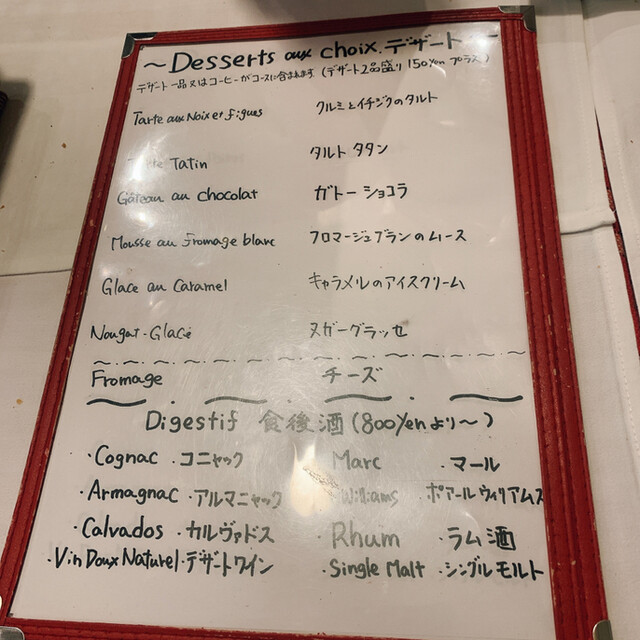 ~ Desserts aux choix. デザート ~
デザート一品又はコーヒーがコースに含まれます (デザート2品盛り 150yen プラス)
Tarte aux Noix et figues クルミとイチジクのタルト
Tatin タルト タタン
Gâteau au chocolat ガトー ショコラ
Mousse au fromage blanc フロマージュブランのムース
Glace au Caramel キャラメルのアイスクリーム
Nougat-Glacé ヌガーグラッセ
Fromage チーズ
Digestif 食後酒 (800yenより~)
・Cognac ・コニャック Marc ・マール
・Armagnac ・アルマニャック Williams ・ポアールウィリアムス
・Calvados ・カルヴァドス Rhum ・ラム酒
・Vin Doux Naturel ・デザートワイン ・Single Malt ・シングルモルト